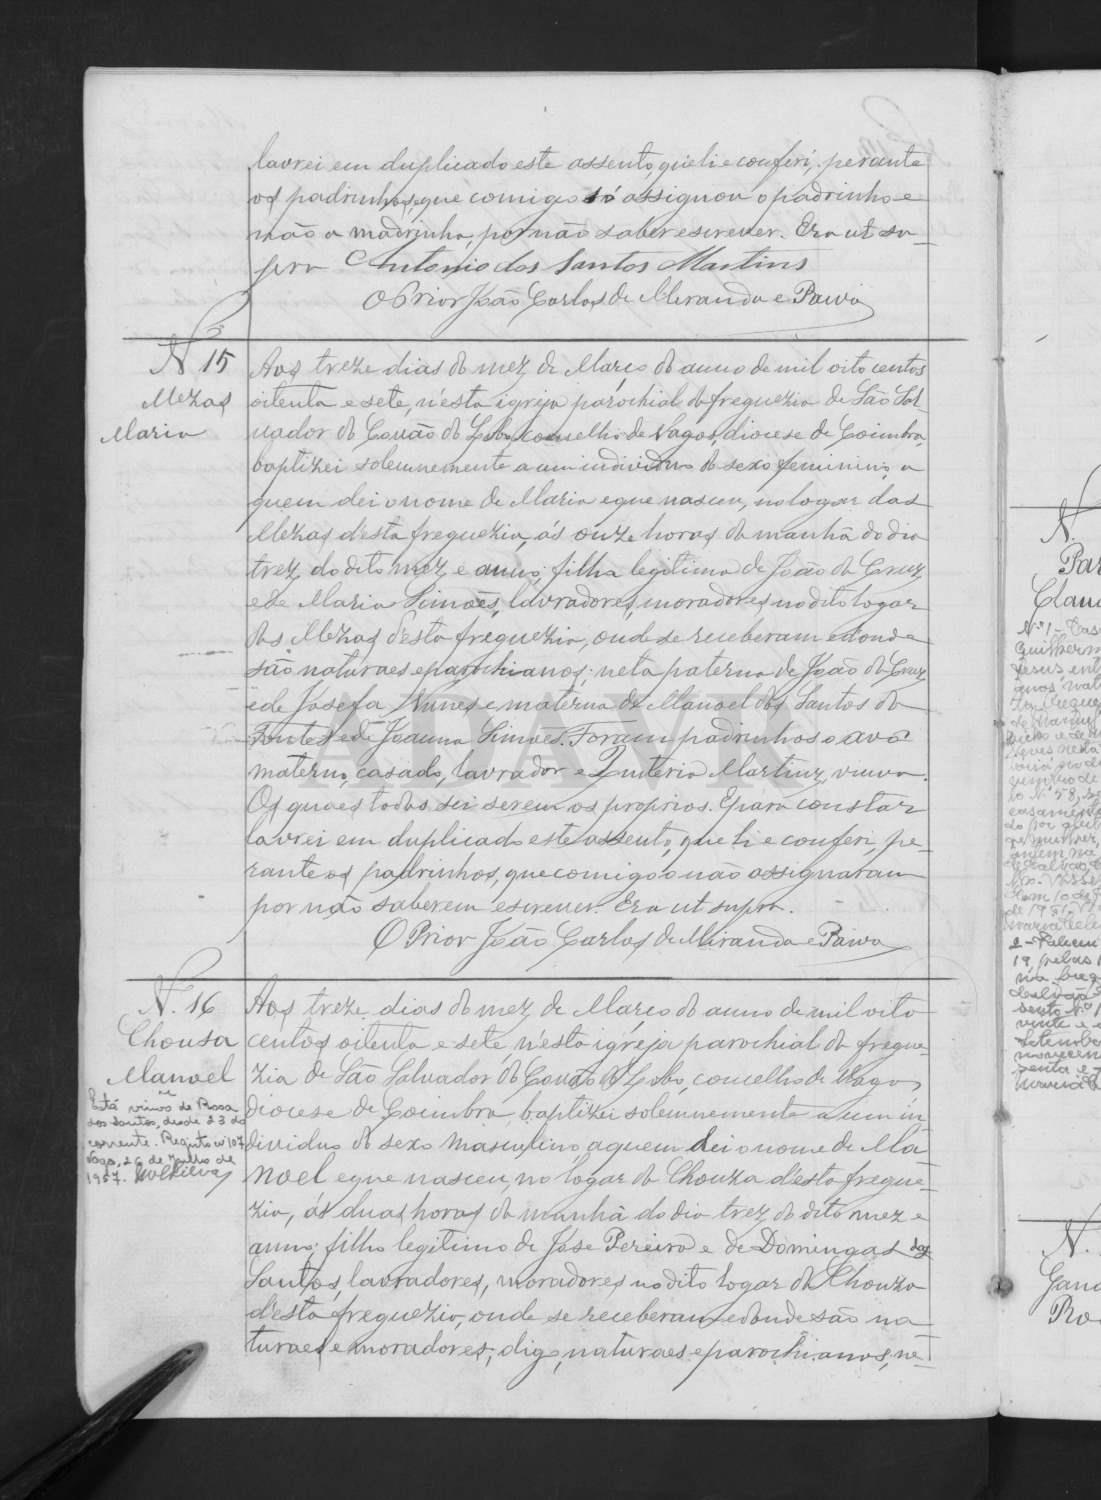 lavrei em duplicado este assento, que li e conferi, perante
os padrinhos, que comigo só assignou o padrinho e
não a madrinha, por não saber escrever. Era ut su-
pra Antonio dos Santos Martins
O Prior João Carlos de Miranda e Paiva
N. 15
Mezas
Maria
Aos treze dias do mez de Março do anno de mil oito centos
oitenta e sete, n'esta igreja parochial da freguezia de São Sal-
vador do Covão do Lobo, concelho de Vagos, diocese de Coimbra,
baptizei solemnemente a um individuo do sexo feminino, a
quem dei o nome de Maria e que nasceu, no logar das
Mezas d'esta freguezia, ás onze horas da manhã do dia
trez do dito mez e anno; filha legitima de João da Cruz
e de Maria Simões, lavradores, moradores no dito logar
das Mezas d'esta freguezia, onde se receberam e donde
são naturaes e parochianos; neta paterna de João da Cruz
e de Josefa Nunes e materna de Manoel dos Santos da
Fonte e de Joanna Simões. Foram padrinhos o avô
materno, casado, lavrador e Quiteria Martins, viuva.
Os quaes todos sei serem os proprios. E para constar
lavrei em duplicado este assento, que li e conferi, pe-
rante os padrinhos, que comigo o não assignaram
por não saberem escrever. Era ut supra.
O Prior João Carlos de Miranda e Paiva
ADAVR
N. 16
Chousa
Manoel
Está viuvo de Rosa
dos Santos, desde 23 do
corrente. Registo nº 107
Vagos, 26 de Julho de
1957.
Aos treze dias do mez de Março do anno de mil oito
centos oitenta e sete, n'esta igreja parochial da fregue-
zia de São Salvador do Covão do Lobo, concelho de Vagos,
diocese de Coimbra, baptizei solemnemente a um in-
dividuo do sexo masculino, a quem dei o nome de Ma-
noel e que nasceu, no logar da Chouza d'esta fregue-
zia, ás duas horas da manhã do dia trez do dito mez e
anno; filho legitimo de José Pereira e de Domingas dos
Santos, lavradores, moradores no dito logar da Chouza
d'esta freguezia, onde se receberam e donde são na-
turaes e moradores, digo, naturaes e parochianos, ne-
N.
Par
Clau
N.
Gand
Ro